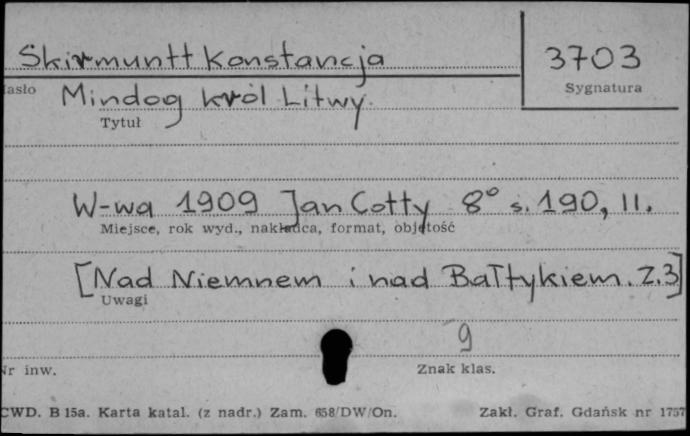 Skirmuntt Konstancja 3703
asło Sygnatura
Mindog król Litwy.
Tytuł
W-wa 1909 Jan Cotty 8° s. 190, II.
Miejsce, rok wyd., nakładca, format, objętość
[Nad Niemnem i nad Bałtykiem. Z.3]
Uwagi
9
Nr inw. Znak klas.
CWD. B 15a. Karta katal. (z nadr.) Zam. 658/DW/On. Zakł. Graf. Gdańsk nr 1757